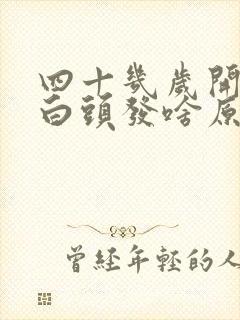 四十幾歲開
白頭發啥原
曾經年輕的人